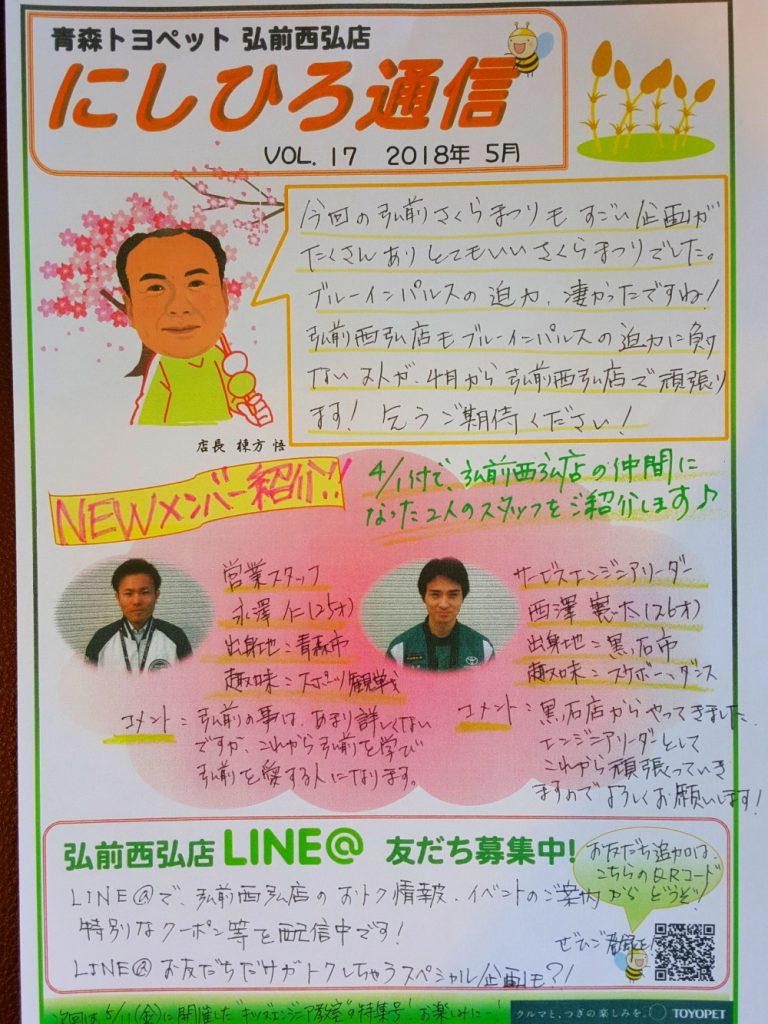 青森トヨペット 弘前西弘店
にしひろ通信
VOL. 17 2018年 5月
今回の弘前さくらまつりも すごい企画が
たくさんあり とてもいいさくらまつりでした。
ブルーインパルスの迫力、凄かったですね!
弘前西弘店もブルーインパルスの迫力に負け
ない が、4月から弘前西弘店で頑張り
ます! 乞うご期待ください!
店長 棟方 悟
NEWメンバー紹介!!
4/1付で、弘前西弘店の仲間に
なった2人のスタッフをご紹介します♪
営業スタッフ
永澤 仁(25才)
出身地:青森市
趣味:スポーツ観戦
コメント:弘前の事は、あまり詳しくない
ですが、これから弘前を学び
弘前を愛する人になります。
サービスエンジニアリーダー
西澤 憲太(26才)
出身地:黒石市
趣味:スケボー、ダンス
コメント:黒石店からやってきました。
エンジニアリーダーとして
これから頑張っていき
ますのでよろしくお願いします!
弘前西弘店 LINE@ 友だち募集中!
お友だち追加は、
こちらのQRコード
からどうぞ!
LINE@で、弘前西弘店のおトク情報、イベントのご案内
特別なクーポン等を配信中です!
ぜひご登録を!
LINE@お友だちだけがトクしちゃうスペシャル企画も?!
次回は、5/11(金)に開催した"キッズエンジニア教室"の特集号!お楽しみに…!
クルマと、つぎの楽しみを。 TOYOPET